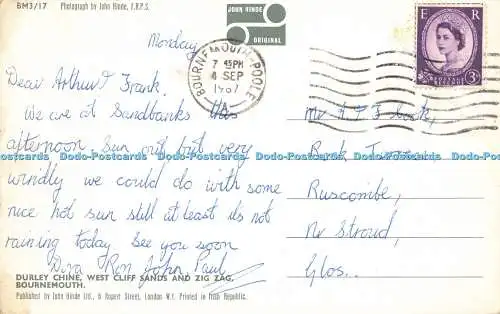 BM3/17 Photograph by John Hinde, F.R.P.S.
JOHN HINDE
ORIGINAL
BOURNEMOUTH-POOLE
7 45PM
4 SEP
1967
A
E R
POSTAGE REVENUE
3D
Monday
Dear Arthur & Frank.
We are at Sandbanks this
afternoon. Sun out but very
windy we could do with some
nice hot sun still at least its not
raining today. See you soon
Dora Ron John, Paul
Mr A T F
Terrace,
Ruscombe,
Nr Stroud,
Glos.
Dodo-Postcards Dodo-Postcards Dodo-Postcards Dodo-Postcards Dodo-Postcards Dodo-Postcards
DURLEY CHINE, WEST CLIFF SANDS AND ZIG ZAG,
BOURNEMOUTH.
Published by John Hinde Ltd., 6 Rupert Street, London W.1. Printed in Irish Republic.